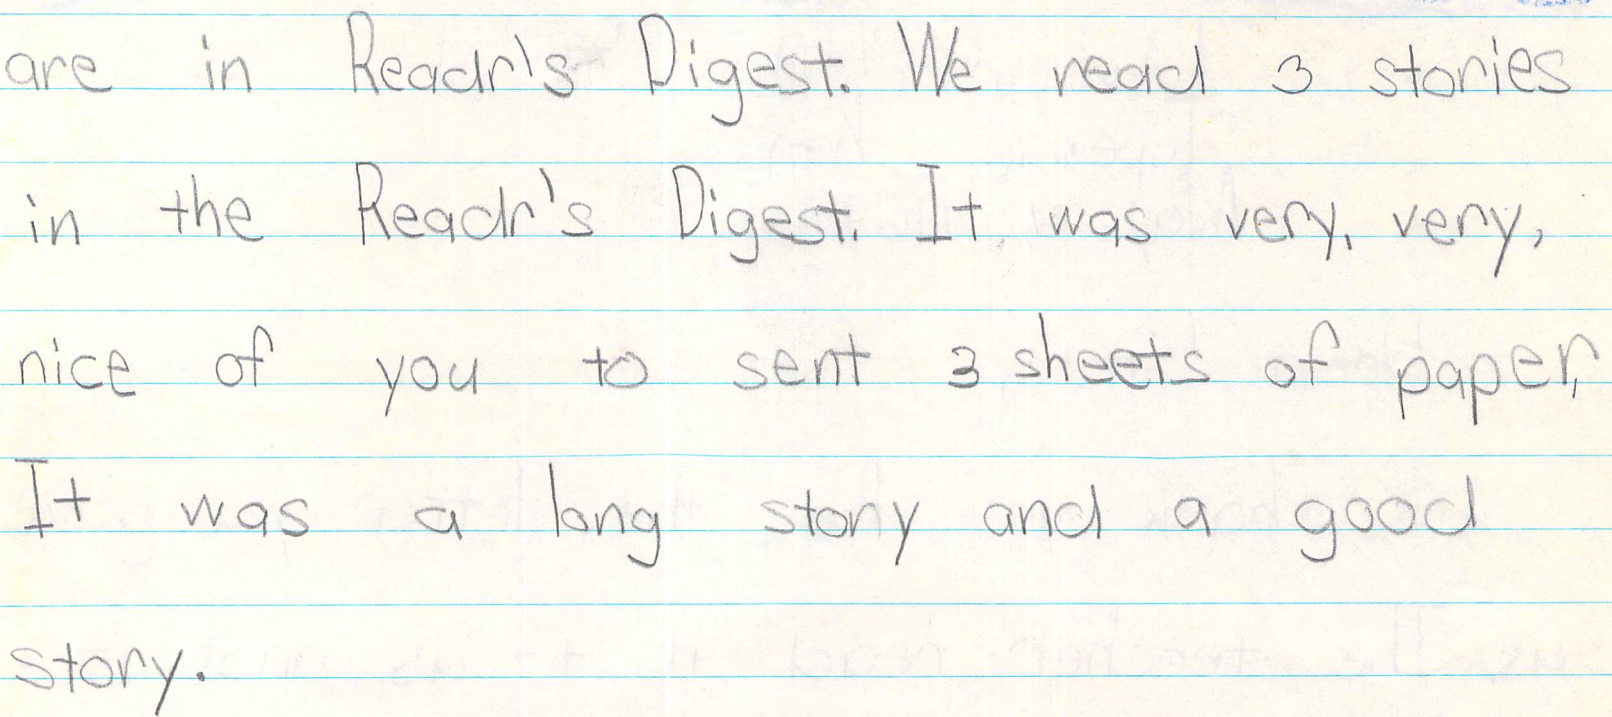 are in Readr's Digest. We read 3 stories
in the Readr's Digest. It was very, very,
nice of you to sent 3 sheets of paper,
It was a long story and a good
story.